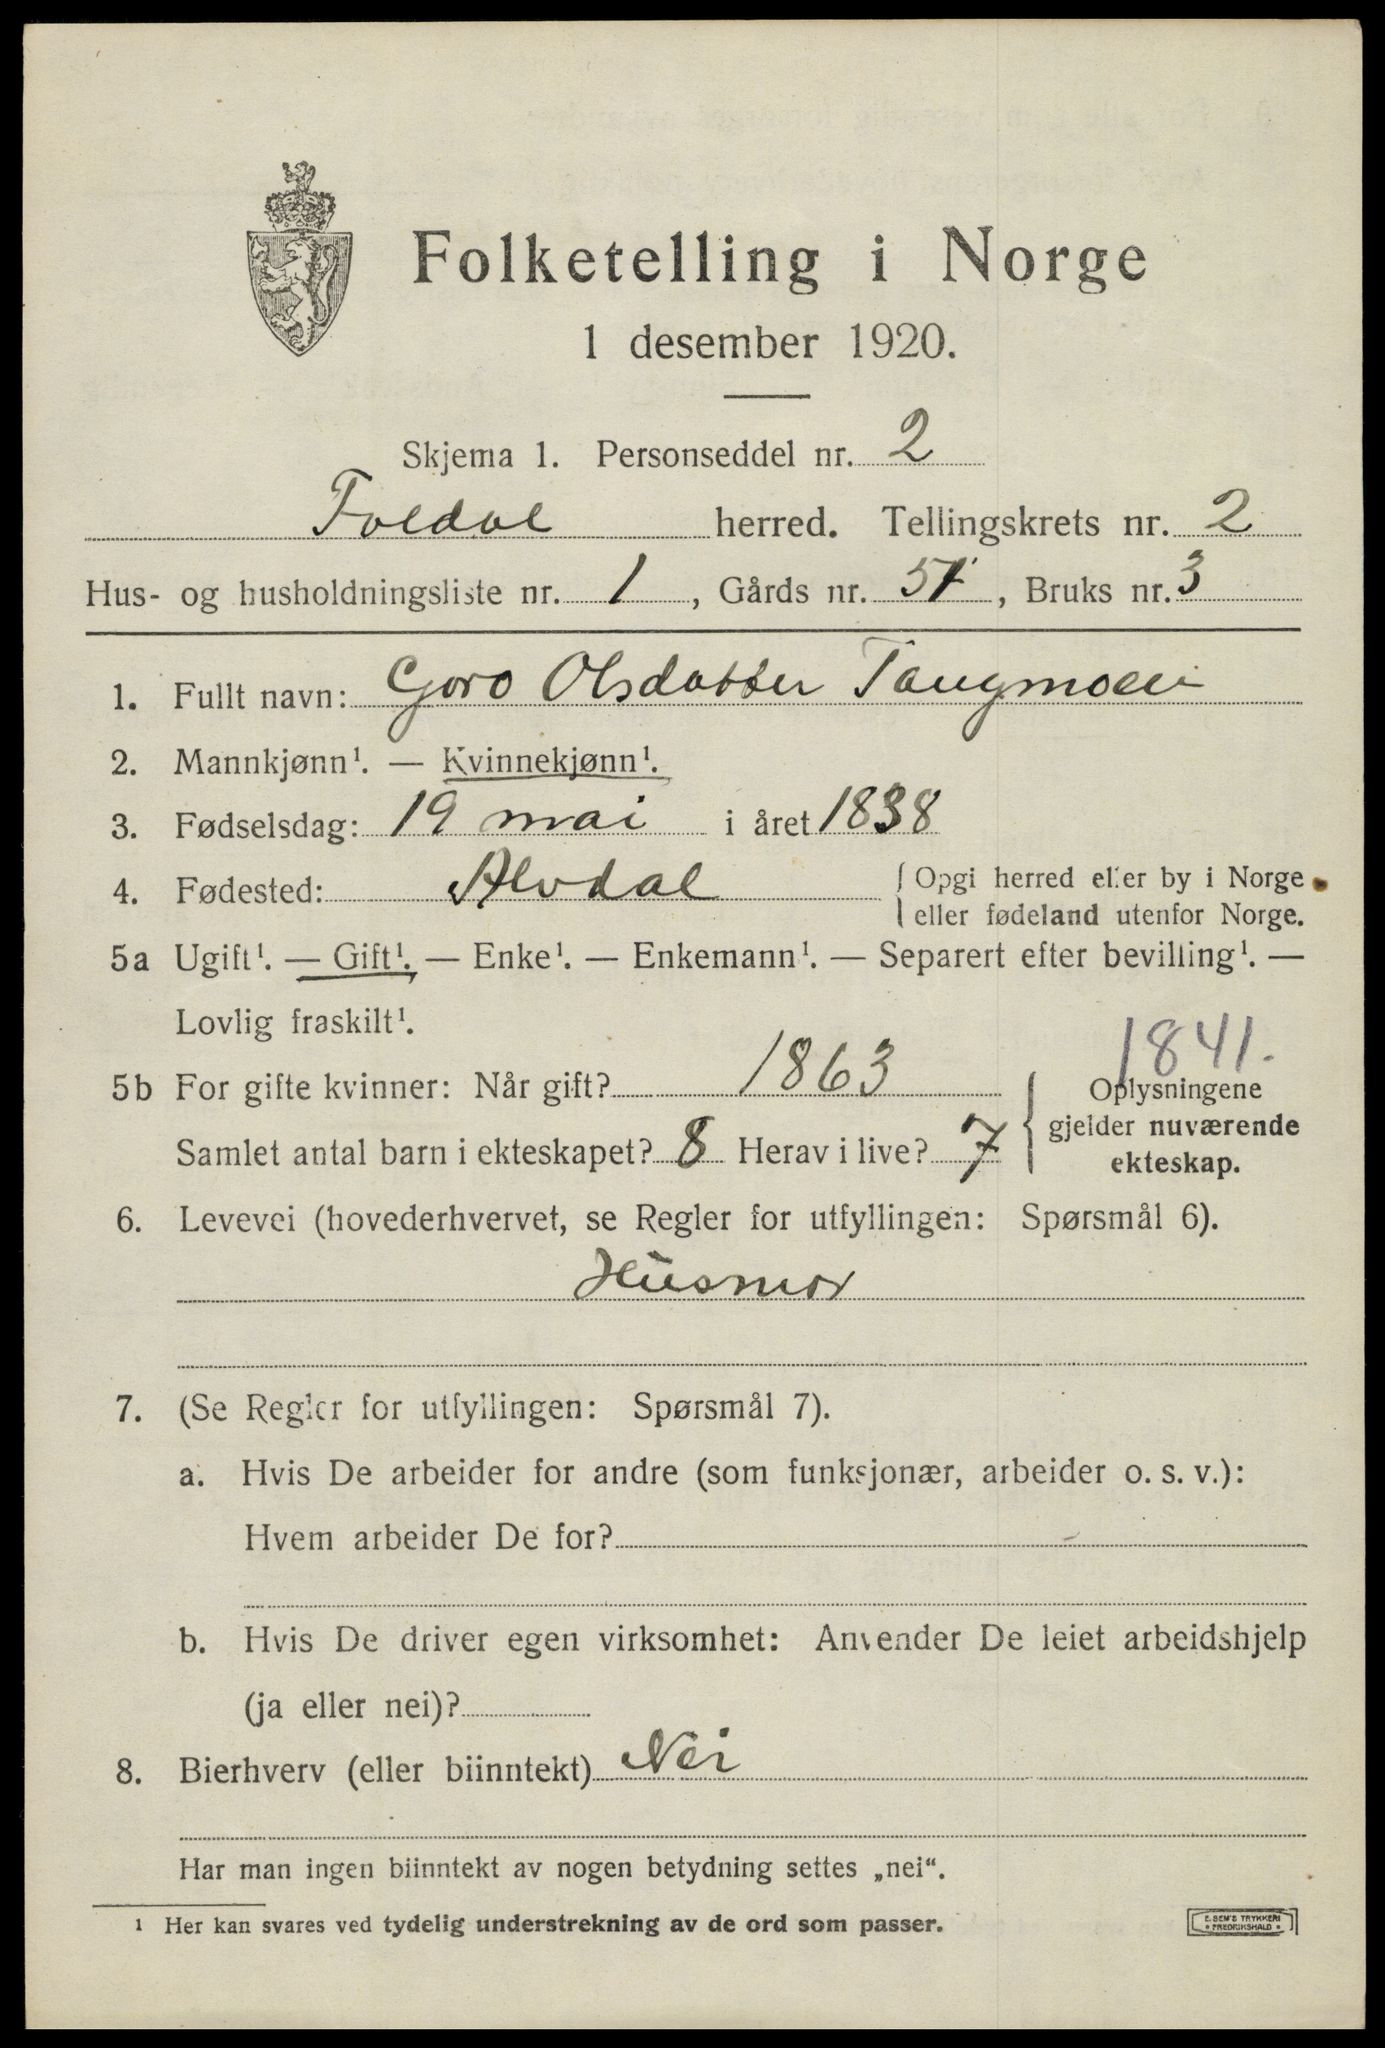 Folketelling i Norge
1 desember 1920.
Skjema 1. Personseddel nr. 2
Foldal herred. Tellingskrets nr. 2
Hus- og husholdningsliste nr. 1, Gårds nr. 51, Bruks nr. 3
1. Fullt navn: Goro Olsdatter Taugmoen
2. Mannkjønn¹. — Kvinnekjønn¹.
3. Fødselsdag: 19 mai i året 1838
4. Fødested: Alvdal { Opgi herred eller by i Norge
eller fødeland utenfor Norge.
5a Ugift¹. — Gift¹. — Enke¹. — Enkemann¹. — Separert efter bevilling¹. —
Lovlig fraskilt¹.
1841.
5b For gifte kvinner: Når gift? 1863 { Oplysningene
gjelder nuværende
Samlet antal barn i ekteskapet? 8 Herav i live? 7
ekteskap.
6. Levevei (hovederhvervet, se Regler for utfyllingen: Spørsmål 6).
Husmor
7. (Se Regler for utfyllingen: Spørsmål 7).
a. Hvis De arbeider for andre (som funksjonær, arbeider o. s. v.):
Hvem arbeider De for?
b. Hvis De driver egen virksomhet: Anvender De leiet arbeidshjelp
(ja eller nei)?
8. Bierhverv (eller biinntekt) Nei
Har man ingen biinntekt av nogen betydning settes „nei“.
¹ Her kan svares ved tydelig understrekning av de ord som passer.
E. SEM'S TRYKKERI
• FREDRIKSHALD •